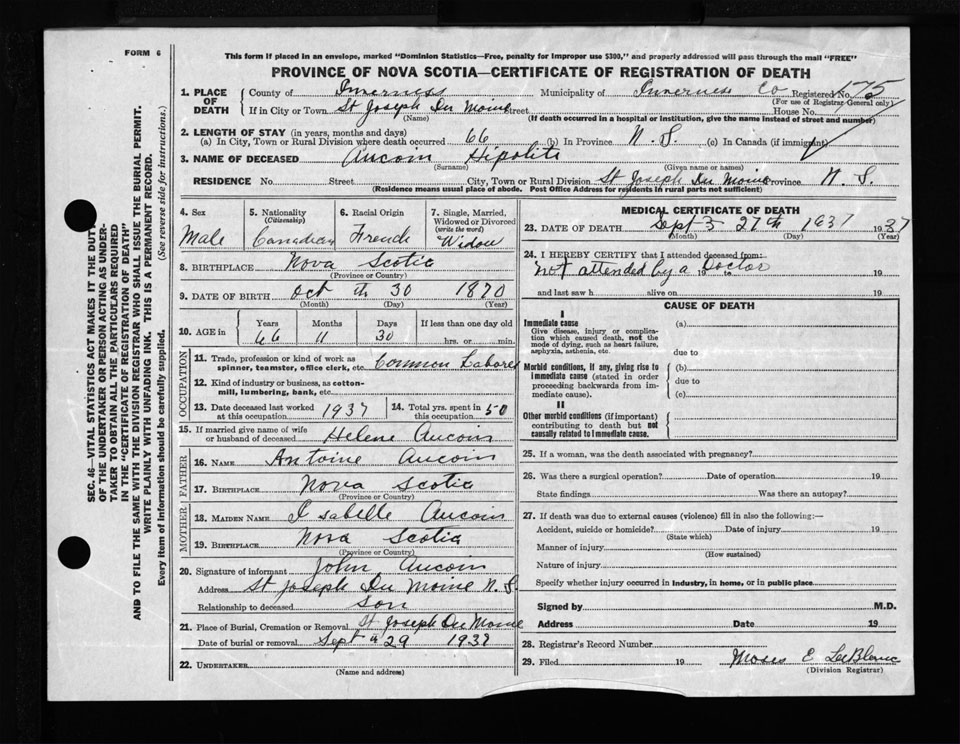 FORM 6
This form if placed in an envelope, marked "Dominion Statistics—Free, penalty for improper use $300," and properly addressed will pass through the mail "FREE"
PROVINCE OF NOVA SCOTIA—CERTIFICATE OF REGISTRATION OF DEATH
1. PLACE OF DEATH
County of Inverness Municipality of Inverness Co Registered No. 175
(For use of Registrar General only)
If in City or Town St Joseph Du Moine Street House No.
(Name) (If death occurred in a hospital or institution, give the name instead of street and number)
2. LENGTH OF STAY (in years, months and days)
(a) In City, Town or Rural Division where death occurred 66 (b) In Province N. S. (c) In Canada (if immigrant)
3. NAME OF DECEASED Aucoin Hipolite
(Surname) (Given name or names)
RESIDENCE No. Street City, Town or Rural Division St Joseph Du Moine Province N. S.
(Residence means usual place of abode. Post Office Address for residents in rural parts not sufficient)
4. Sex Male
5. Nationality (Citizenship) Canadian
6. Racial Origin French
7. Single, Married, Widowed or Divorced (write the word) Widow
8. BIRTHPLACE Nova Scotia
(Province or Country)
9. DATE OF BIRTH Oct th 30 1870
(Month) (Day) (Year)
10. AGE in Years 66 Months 11 Days 30 If less than one day old hrs. or min.
OCCUPATION
11. Trade, profession or kind of work as spinner, teamster, office clerk, etc. Common Laborer
12. Kind of industry or business, as cotton-mill, lumbering, bank, etc.
13. Date deceased last worked at this occupation 1937
14. Total yrs. spent in this occupation 50
15. If married give name of wife or husband of deceased Helene Aucoin
FATHER
16. NAME Antoine Aucoin
17. BIRTHPLACE Nova Scotia
(Province or Country)
MOTHER
18. MAIDEN NAME Isabelle Aucoin
19. BIRTHPLACE Nova Scotia
(Province or Country)
20. Signature of informant John Aucoin
Address St Joseph Du Moine N. S.
Relationship to deceased Son
21. Place of Burial, Cremation or Removal St Joseph Du Moine
Date of burial or removal Sept 29 1937
22. UNDERTAKER
(Name and address)
MEDICAL CERTIFICATE OF DEATH
23. DATE OF DEATH Sept 27th 1937 1937
(Month) (Day) (Year)
24. I HEREBY CERTIFY that I attended deceased from:
Not attended by a Doctor 19 to 19
and last saw h alive on 19
CAUSE OF DEATH
I
Immediate cause (a)
Give disease, injury or complication which caused death, not the mode of dying, such as heart failure, asphyxia, asthenia, etc.
due to
Morbid conditions, if any, giving rise to immediate cause (stated in order proceeding backwards from immediate cause).
(b)
due to
(c)
II
Other morbid conditions (if important) contributing to death but not causally related to immediate cause.
25. If a woman, was the death associated with pregnancy?
26. Was there a surgical operation? Date of operation 19
State findings Was there an autopsy?
27. If death was due to external causes (violence) fill in also the following:—
Accident, suicide or homicide? Date of injury 19
(State which)
Manner of injury
(How sustained)
Nature of injury
Specify whether injury occurred in industry, in home, or in public place
Signed by M.D.
Address Date 19
28. Registrar's Record Number
29. Filed 19 Moses E LeBlanc
(Division Registrar)
SEC. 46—VITAL STATISTICS ACT MAKES IT THE DUTY
OF THE UNDERTAKER OR PERSON ACTING AS UNDER-
TAKER TO OBTAIN ALL THE PARTICULARS REQUIRED
IN THE "CERTIFICATE OF REGISTRATION OF DEATH"
AND TO FILE THE SAME WITH THE DIVISION REGISTRAR WHO SHALL ISSUE THE BURIAL PERMIT.
WRITE PLAINLY WITH UNFADING INK. THIS IS A PERMANENT RECORD.
Every item of information should be carefully supplied. (See reverse side for instructions.)